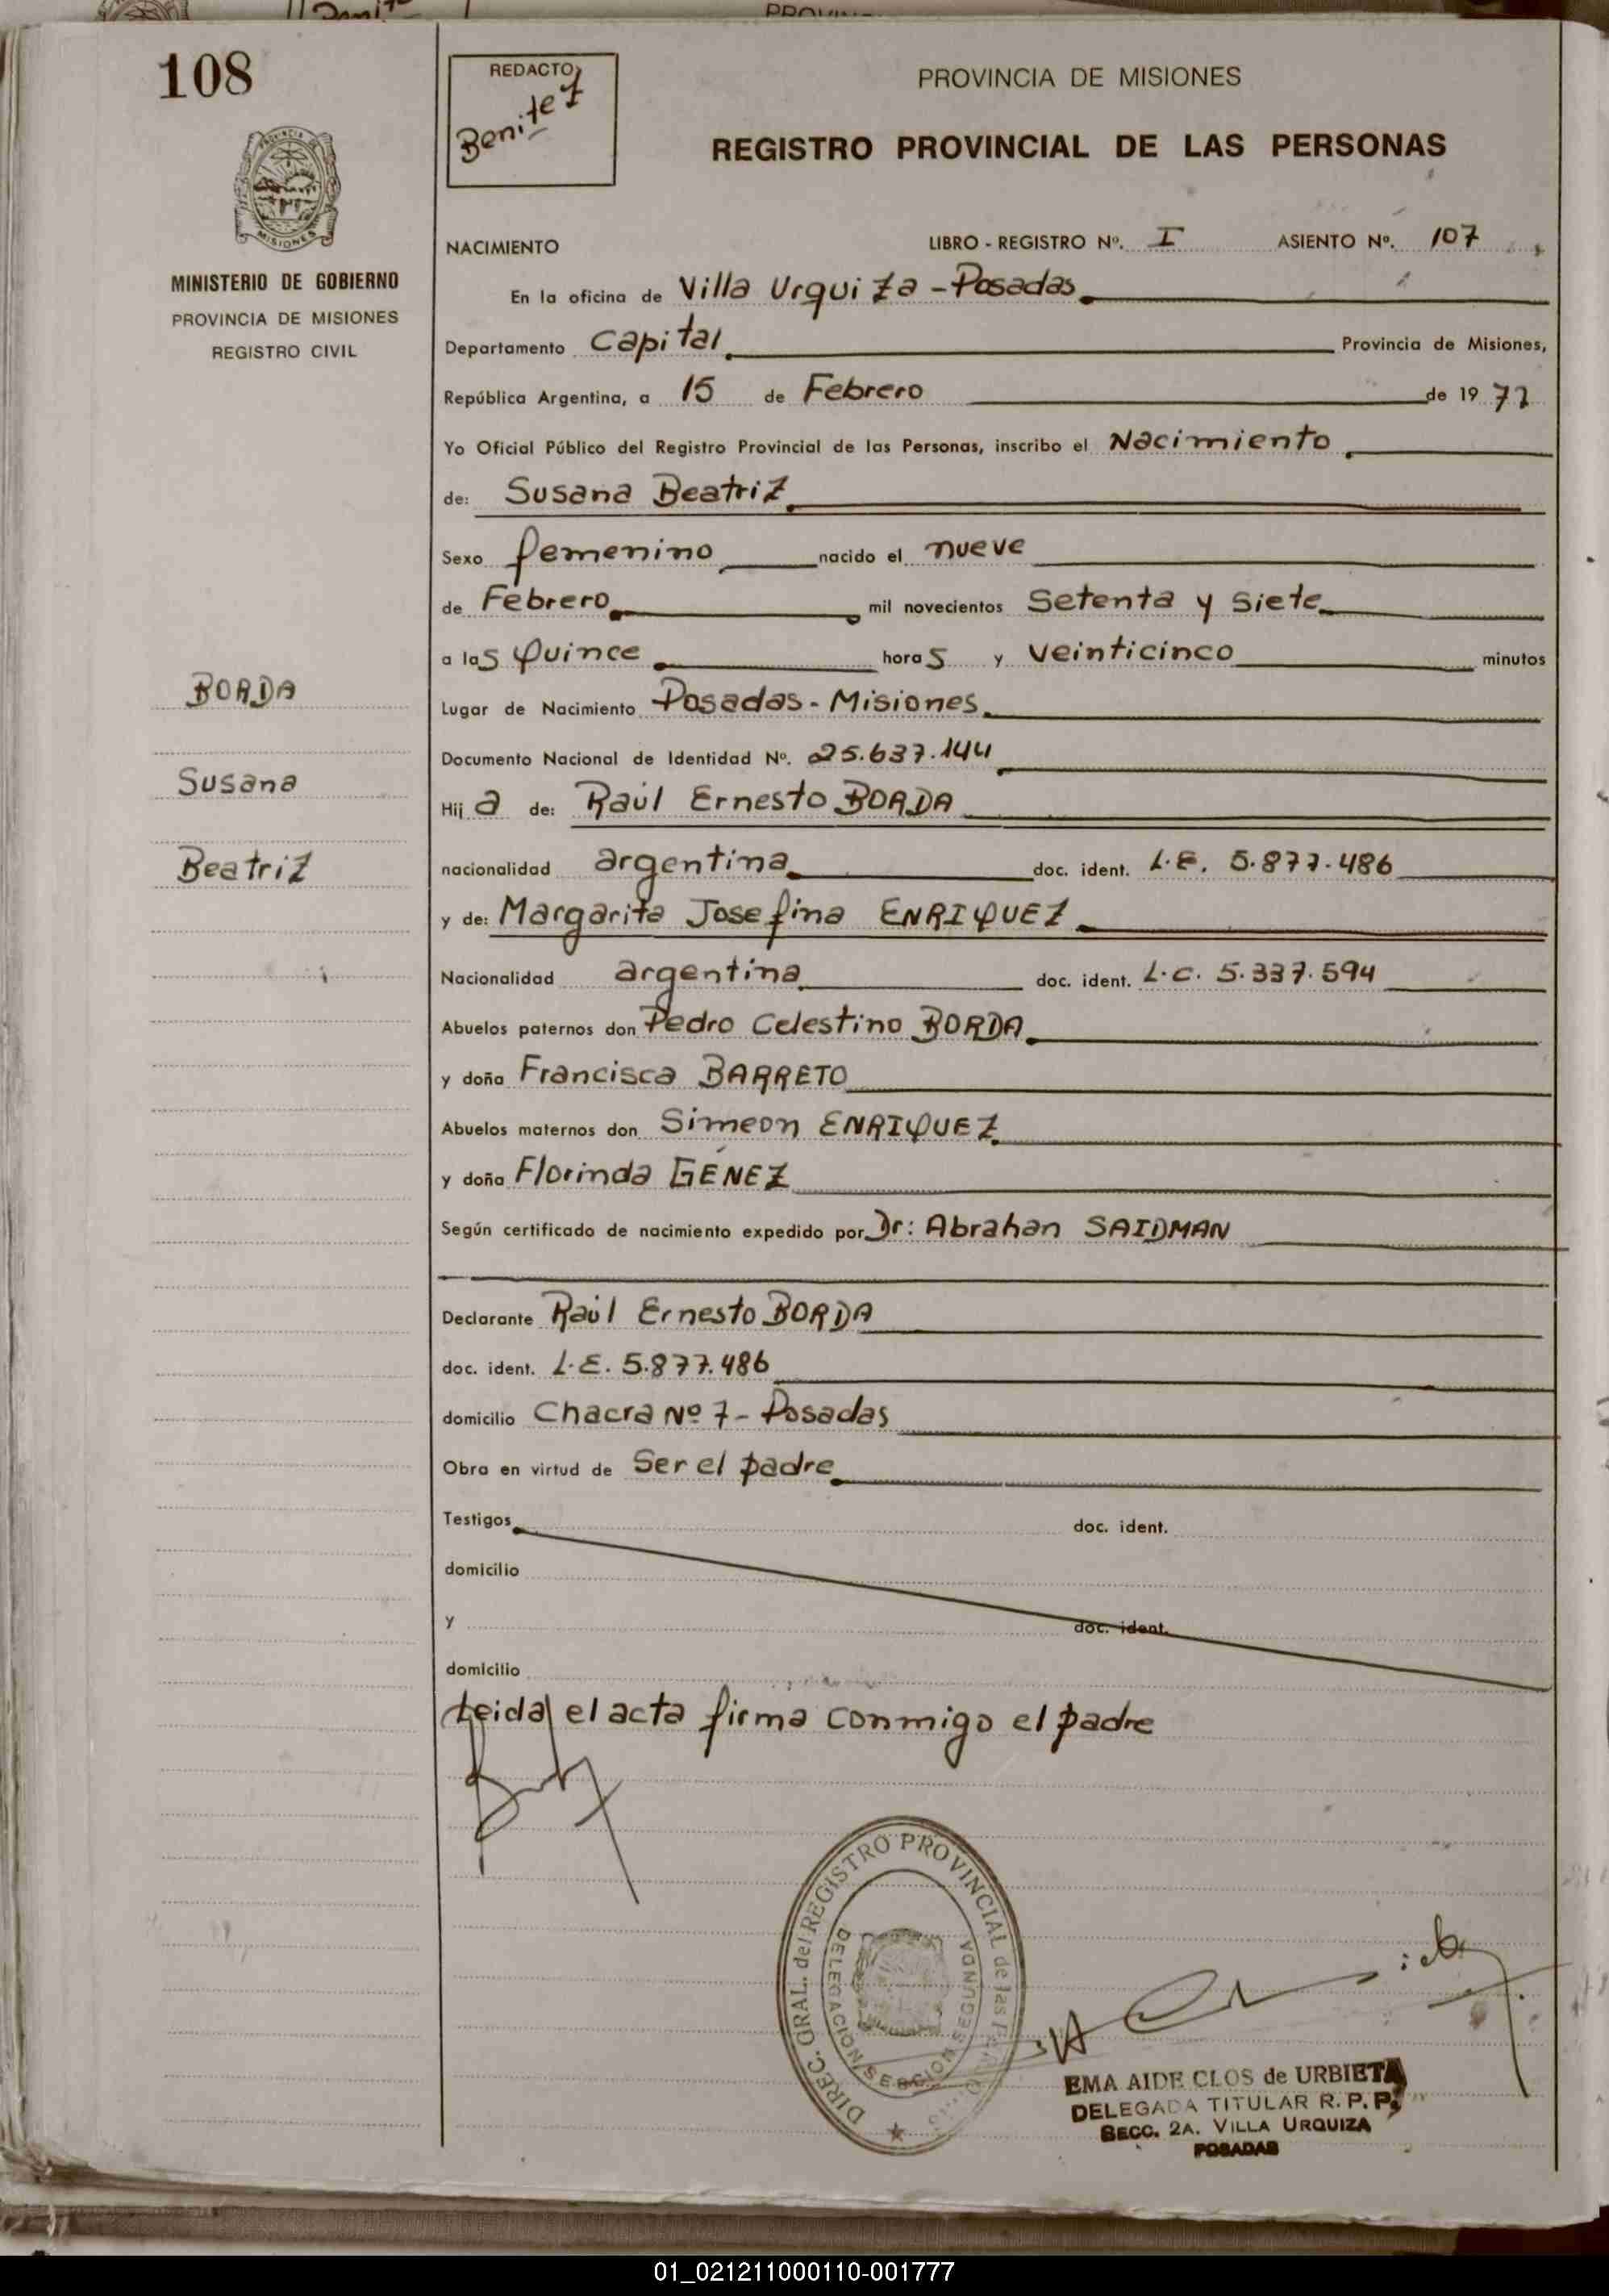 108
REDACTO
Benitez
PROVINCIA DE MISIONES
REGISTRO PROVINCIAL DE LAS PERSONAS
MISIONES
MINISTERIO DE GOBIERNO
PROVINCIA DE MISIONES
REGISTRO CIVIL
NACIMIENTO LIBRO - REGISTRO Nº. I ASIENTO Nº. 107
En la oficina de Villa Urquiza - Posadas
Departamento Capital Provincia de Misiones,
República Argentina, a 15 de Febrero de 1977
Yo Oficial Público del Registro Provincial de las Personas, inscribo el Nacimiento
de: Susana Beatriz
Sexo femenino nacido el nueve
de Febrero mil novecientos Setenta y siete
a las Quince horas y veinticinco minutos
BORDA
Susana
Beatriz
Lugar de Nacimiento Posadas - Misiones
Documento Nacional de Identidad Nº. 25.637.144
Hija de: Raúl Ernesto BORDA
nacionalidad argentina doc. ident. L.E. 5.877.486
y de: Margarita Josefina ENRIQUEZ
Nacionalidad argentina doc. ident. L.C. 5.337.594
Abuelos paternos don Pedro Celestino BORDA
y doña Francisca BARRETO
Abuelos maternos don Simeon ENRIQUEZ
y doña Florinda GÉNEZ
Según certificado de nacimiento expedido por Dr: Abrahan SAIDMAN
Declarante Raúl Ernesto BORDA
doc. ident. L.E. 5.877.486
domicilio Chacra Nº 7 - Posadas
Obra en virtud de Ser el padre
Testigos doc. ident.
domicilio
y doc. ident.
domicilio
Leida el acta firma conmigo el padre
DIREC. GRAL. del REGISTRO PROVINCIAL de las
DELEGACION SECCION SEGUNDA
EMA AIDE CLOS de URBIETA
DELEGADA TITULAR R.P.P.
SECC. 2A. VILLA URQUIZA
POSADAS
01_021211000110-001777